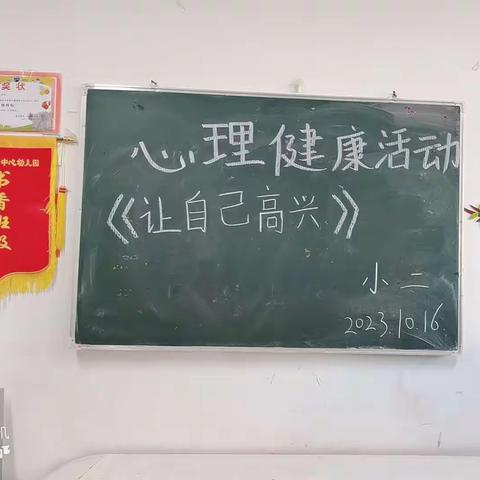 奖状
中心幼儿园
书香班级
心理健康活动
《让自己高兴》
小二
2023.10.16
机